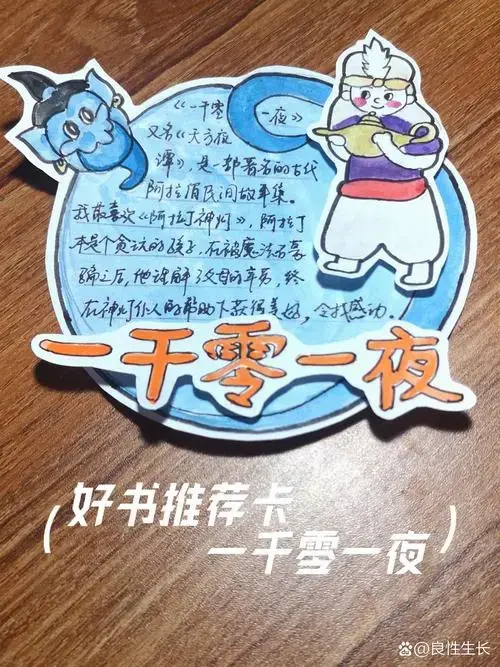 《一千零一夜》
又名《天方夜
谭》,是一部著名的古代
阿拉伯民间故事集。
我最喜欢《阿拉丁神灯》,阿拉丁
本是个贪玩的孩子,在被魔法师蒙
骗之后,他解了父母的辛劳,终
在神灯仆人的帮助下获得幸福,令我感动。
一千零一夜
(好书推荐卡
一千零一夜)
@良性生长